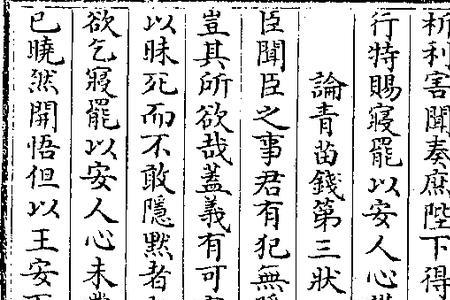 析利害聞奏庶陛下得
行特賜寢罷以安人心
論青苗錢第三狀
臣聞臣之事君有犯無隱
豈其所欲哉蓋義有可
以昧死而不敢隱默者
欲乞寢罷以安人心未
已曉然開悟但以王安